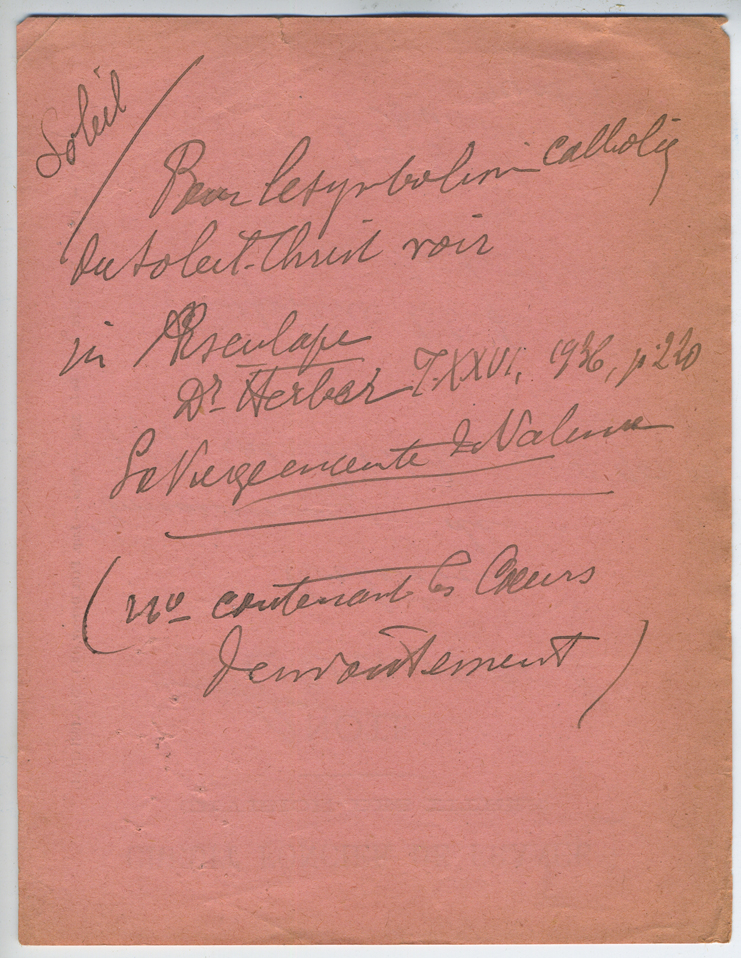 Soleil
Pour le symbolisme catholiq
du Soleil-Christ voir
in Aesculape
Dr Herber T. XXVI, 1936, p. 220
La Vierge enceinte de Valence
(no contenant les Coeurs
d'envoûtement)